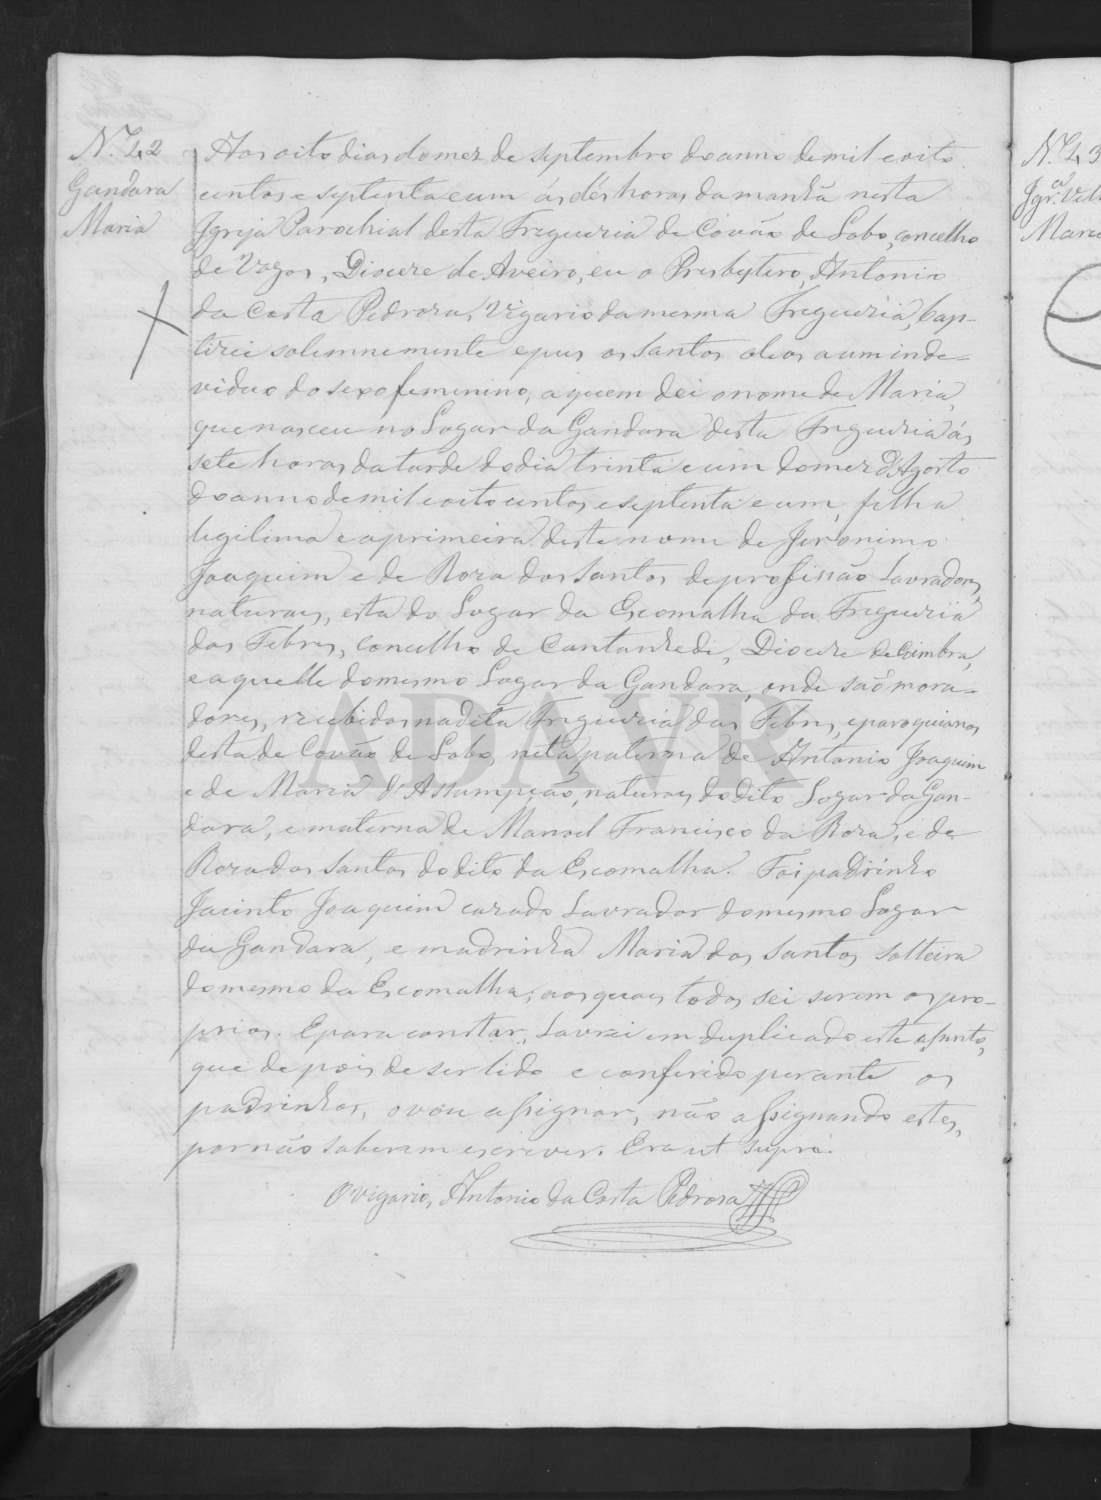 N.º 42
Gandara
Maria
Aos oito dias do mez de septembro do anno de mil e oito
centos e septenta e um ás dés horas da manhã nesta
Igreja Parochial desta Freguezia de Covão de Lobo, concelho
de Vagos, Diocese de Aveiro, eu o Presbytero, Antonio
da Costa Pedrosa, Vigario da mesma Freguezia, bap-
tizei solemnemente e pus os Santos oleos a um inde-
viduo do sexo femenino, a quem dei o nome de Maria,
que nasceu no Logar da Gandara desta Freguezia ás
sete horas da tarde do dia trinta e um do mez d'Agosto
do anno de mil e oito centos e septenta e um, filha
legitima e a primeira deste nome de Jeronimo
Joaquim e de Roza dos Santos de profissão Lavradores,
naturaes, esta do Logar da Escomalha da Freguezia
das Febres, concelho de Cantanhede, Diocese de Coimbra,
e aquelle do mesmo Logar da Gandara, onde são mora-
dores, recebidos na dita Freguezia das Febres, e paroquianos
desta de Covão de Lobo, neta paterna de Antonio Joaquim
e de Maria d'Assumpção, naturaes do dito Logar da Gan-
dara, e materna de Manoel Francisco da Roza, e de
Roza dos Santos do dito da Escomalha. Foi padrinho
Jacinto Joaquim cazado Lavrador do mesmo Logar
da Gandara, e madrinha Maria dos Santos solteira
do mesmo da Escomalha, aos quaes todos sei serem os pro-
prios. E para constar, Lavrei em duplicado este assento,
que depois de ser lido e conferido perante os
padrinhos, o vou assignar, não assignando estes,
por não saberem escrever. Era ut supra.
O vigario, Antonio da Costa Pedrosa
ADAVR
N.º 43